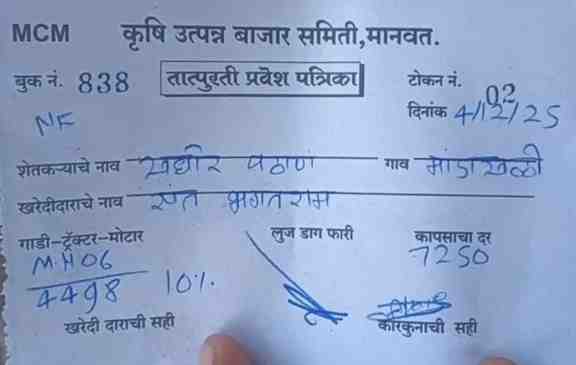 MCM कृषि उत्पन्न बाजार समिती,मानवत.
बुक नं. 838 तात्पुरती प्रवेश पत्रिका टोकन नं. 02
NF दिनांक 4/12/25
शेतकऱ्याचे नाव पठाण गाव मांडाखळी
खरेदीदाराचे नाव संत भगतराम
गाडी-ट्रॅक्टर-मोटार लुज डाग फारी कापसाचा दर
MH06 7250
4498 10%
खरेदी दाराची सही कारकुनाची सही